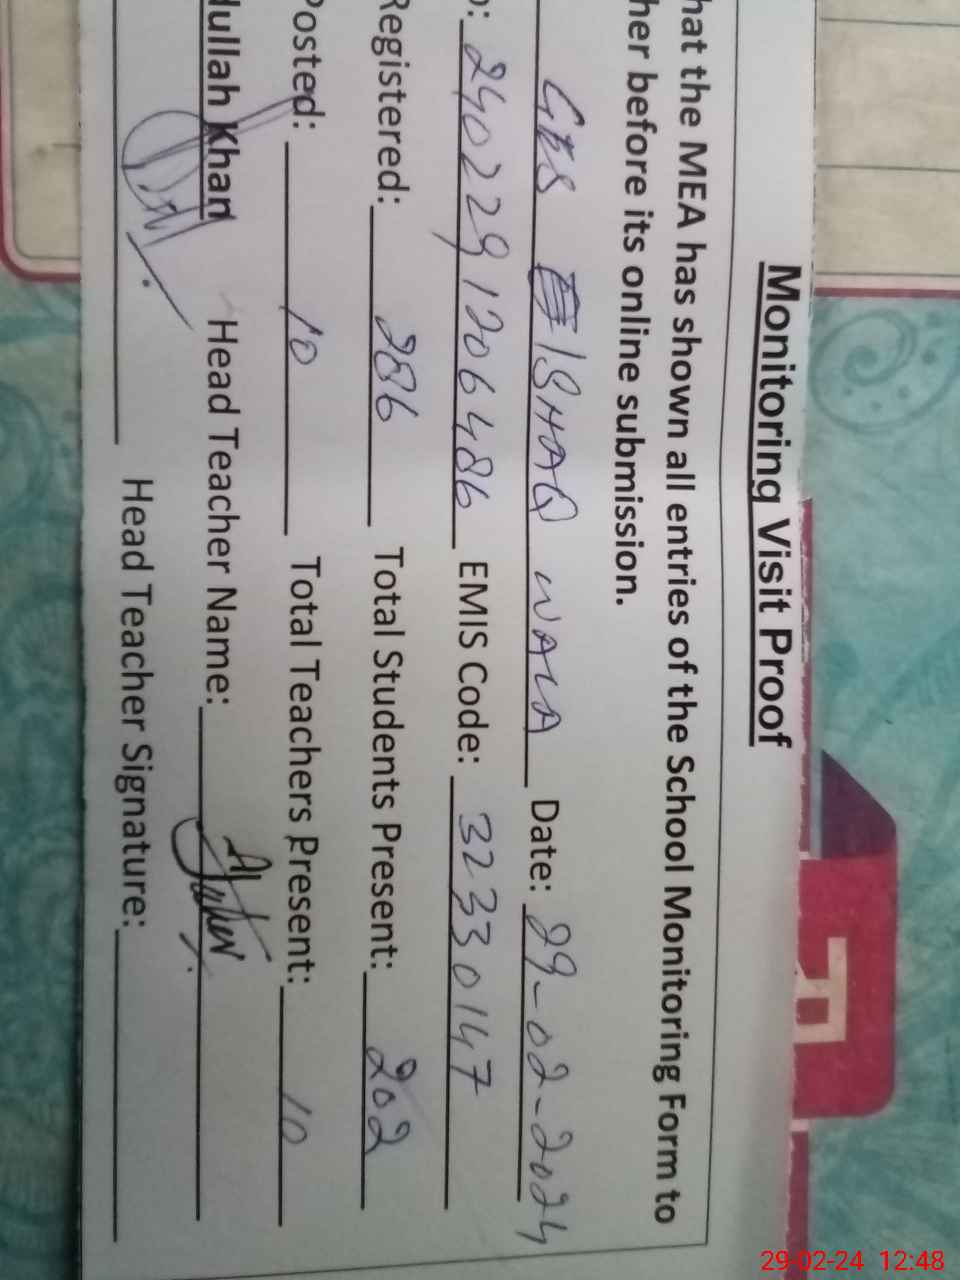 Monitoring Visit Proof
hat the MEA has shown all entries of the School Monitoring Form to
her before its online submission.
GES ISHAQ WALA Date: 29-02-2024
: 2402291206486 EMIS Code: 32330147
Registered: 286 Total Students Present: 202
Posted: 10 Total Teachers Present: 10
dullah Khan Head Teacher Name:
Head Teacher Signature:
29-02-24 12:48